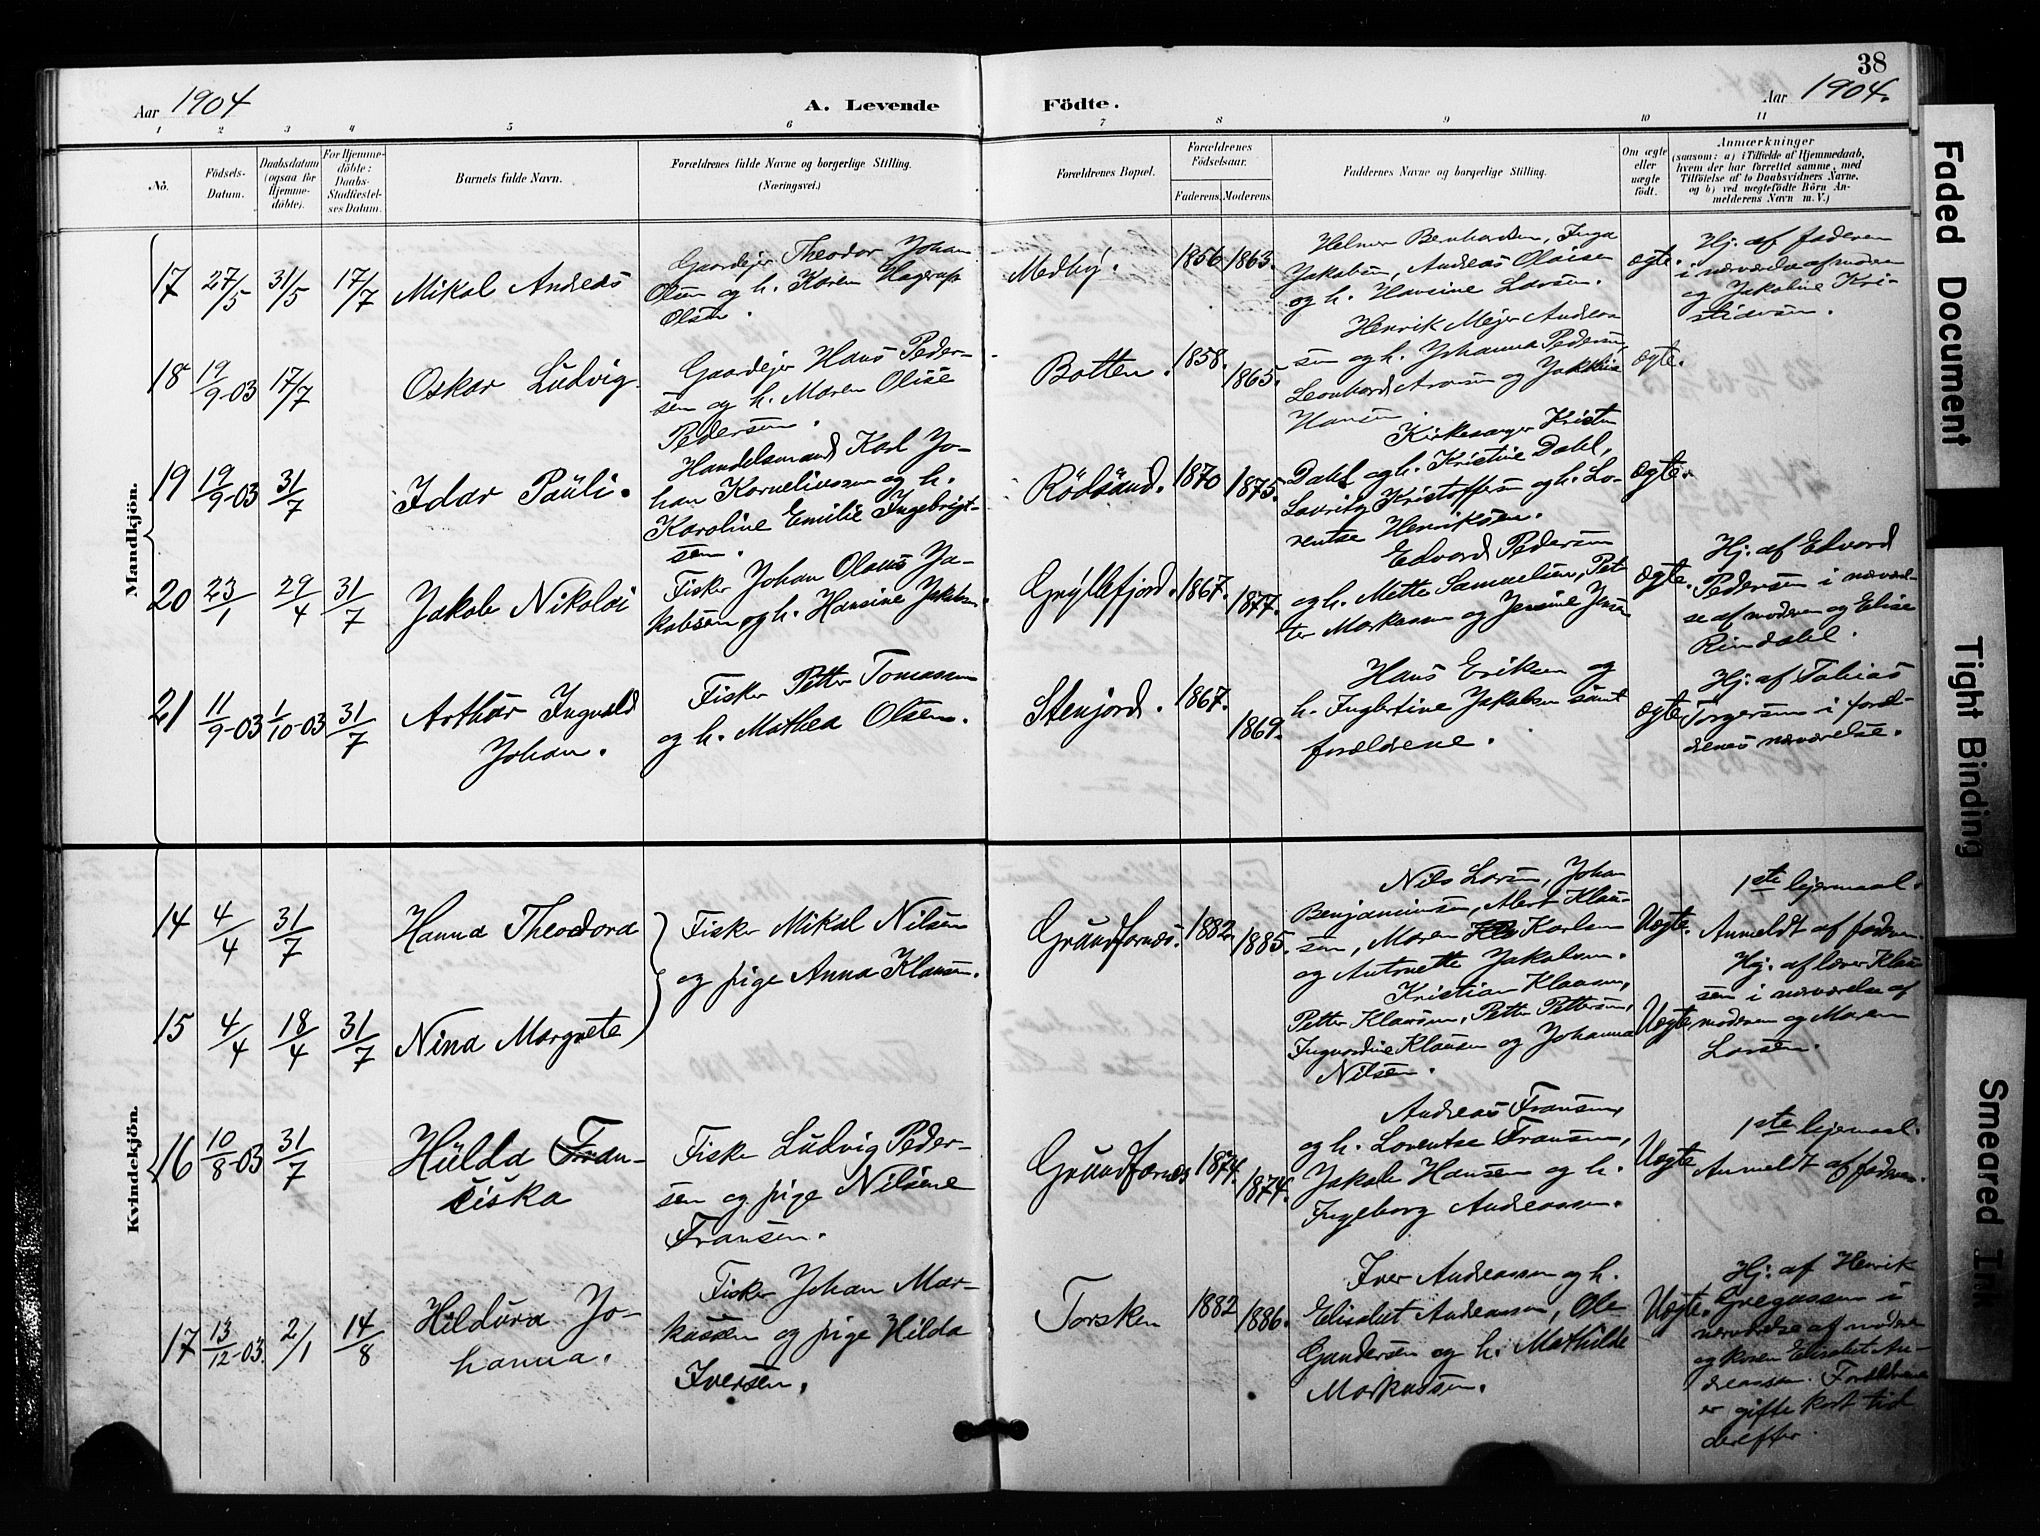 38
Aar 1904
A. Levende
Födte.
Aar 1904.
1 2 3 4 5 6 7 8 9 10 11
No.
Födsels-
Datum.
Daabsdatum
(ogsaa for
Hjemme-
döbte).
For Hjemme-
döbte:
Daabs-
Stadfæstel-
ses Datum.
Barnets fulde Navn.
Forældrenes fulde Navne og borgerlige Stilling.
(Næringsvei.)
Forældrenes Bopæl.
Forældrenes
Födselsaar.
Faderens. Moderens.
Faddernes Navne og borgerlige Stilling.
Om ægte
eller
uægte
født.
Anmærkninger
(saasom: a) i Tilfælde af Hjemmedaab,
hvem der har forrettet samme, med
Tilföielse af to Daabsvidners Navne,
og b) ved uægtefödte Börn An-
melderens Navn m. V.)
Mandkjön.
17 27/5 31/5 17/7 Mikal Andreas
Gaardejer Theodor Johan
Olsen og h. Karen Hagerup
Olsen.
Medby. 1856 1863.
Helmer Bernhardsen, Inga
Jakobsen, Andreas Olaisen
og h. Hansine Larsen.
ægte.
Hj. af faderen
i nærværelse af moren
og Jakoline Kri-
stiansen.
18 19/9-03 17/7 Oskar Ludvig
Gaardejer Hans Peder-
sen og h. Maren Olise
Pedersen.
Botten. 1858. 1865.
Henrik Mejer Andreas
sen og h. Johanna Pedersen,
Leonhard Aronsen og
Hansen
ægte.
19 19/9-03 31/7 Idar Pauli.
Handelsmand Karl Jo-
han Korneliussen og h.
Karoline Emilie Ingebrigt-
sen.
Rödsand. 1870 1875.
Kirkesanger Kristen
Dahl og h. Kristine Dahl,
Lauritz Kristoffersen og h. Lo-
rentse Henriksen.
ægte.
20 23/1 29/4 31/7 Jakob Nikolai
Fisker Johan Olaus Ja-
kobsen og h. Hansine Jakobsen.
Gryllefjord. 1867. 1877.
Edvard Pedersen
og h. Mette Samuelsen, Pet-
ter Markussen og Jensine Jensen
ægte.
Hj. af Edvard
Pedersen i nærværel-
se af moderen og Elise
Rindahl.
21 11/9-03 1/10-03 31/7 Arthur Ingvald
Johan.
Fisker Petter Tomassen
og h. Mathea Olsen.
Stenjord. 1867. 1869.
Hans Eriksen og
h. Ingbertine Jakobsen samt
forældrene.
ægte
Hj. af Tobias
Torgersen i foræl-
drenes nærværelse.
Kvindekjön.
14 4/4 31/7 Hanna Theodora
Fisker Mikal Nilsen
og pige Anna Klausen.
Grundfarnes. 1882. 1885.
Nils Larsen, Johan
Benjaminsen, Alert Klau-
sen, Maren Karlsen
og Antonette Jakobsen.
Uægte.
1ste lejermaal.
Anmeldt af faderen.
15 4/4 18/4 31/7 Nina Margrete
Kristian Klausen,
Petter Klausen, Petter Pettersen,
Ingvardine Klausen og Johanna
Nilsen.
Uægte
Hj. af lærer Klau-
sen i nærværelse af
moderen og Maren
Larsen.
16 10/8-03 31/7 Hulda Fran-
siska
Fisker Ludvig Peder-
sen og pige Nilsine
Fransen.
Grundfarnes 1874. 1874.
Andreas Fransen,
og h. Lorentse Fransen,
Jakob Hansen og h.
Ingeborg Andreassen.
Uægte
1ste lejermaal.
Anmeldt af faderen.
17 13/12-03. 2/1 14/8 Hildura Jo-
hanna.
Fisker Johan Mar-
kussen og pige Hilda
Iversen.
Torsken 1882 1886.
Iver Andreassen og h.
Elisabet Andreassen, Ole
Gundersen og h. Mathilde
Markussen.
Uægte.
Hj. af Henrik
Gregussen i
nærværelse af moderen
og konen Elisabet An-
dreassen. Forældrene
er gifte kort tid
derefter.
Faded Document
Tight Binding
Smeared Ink